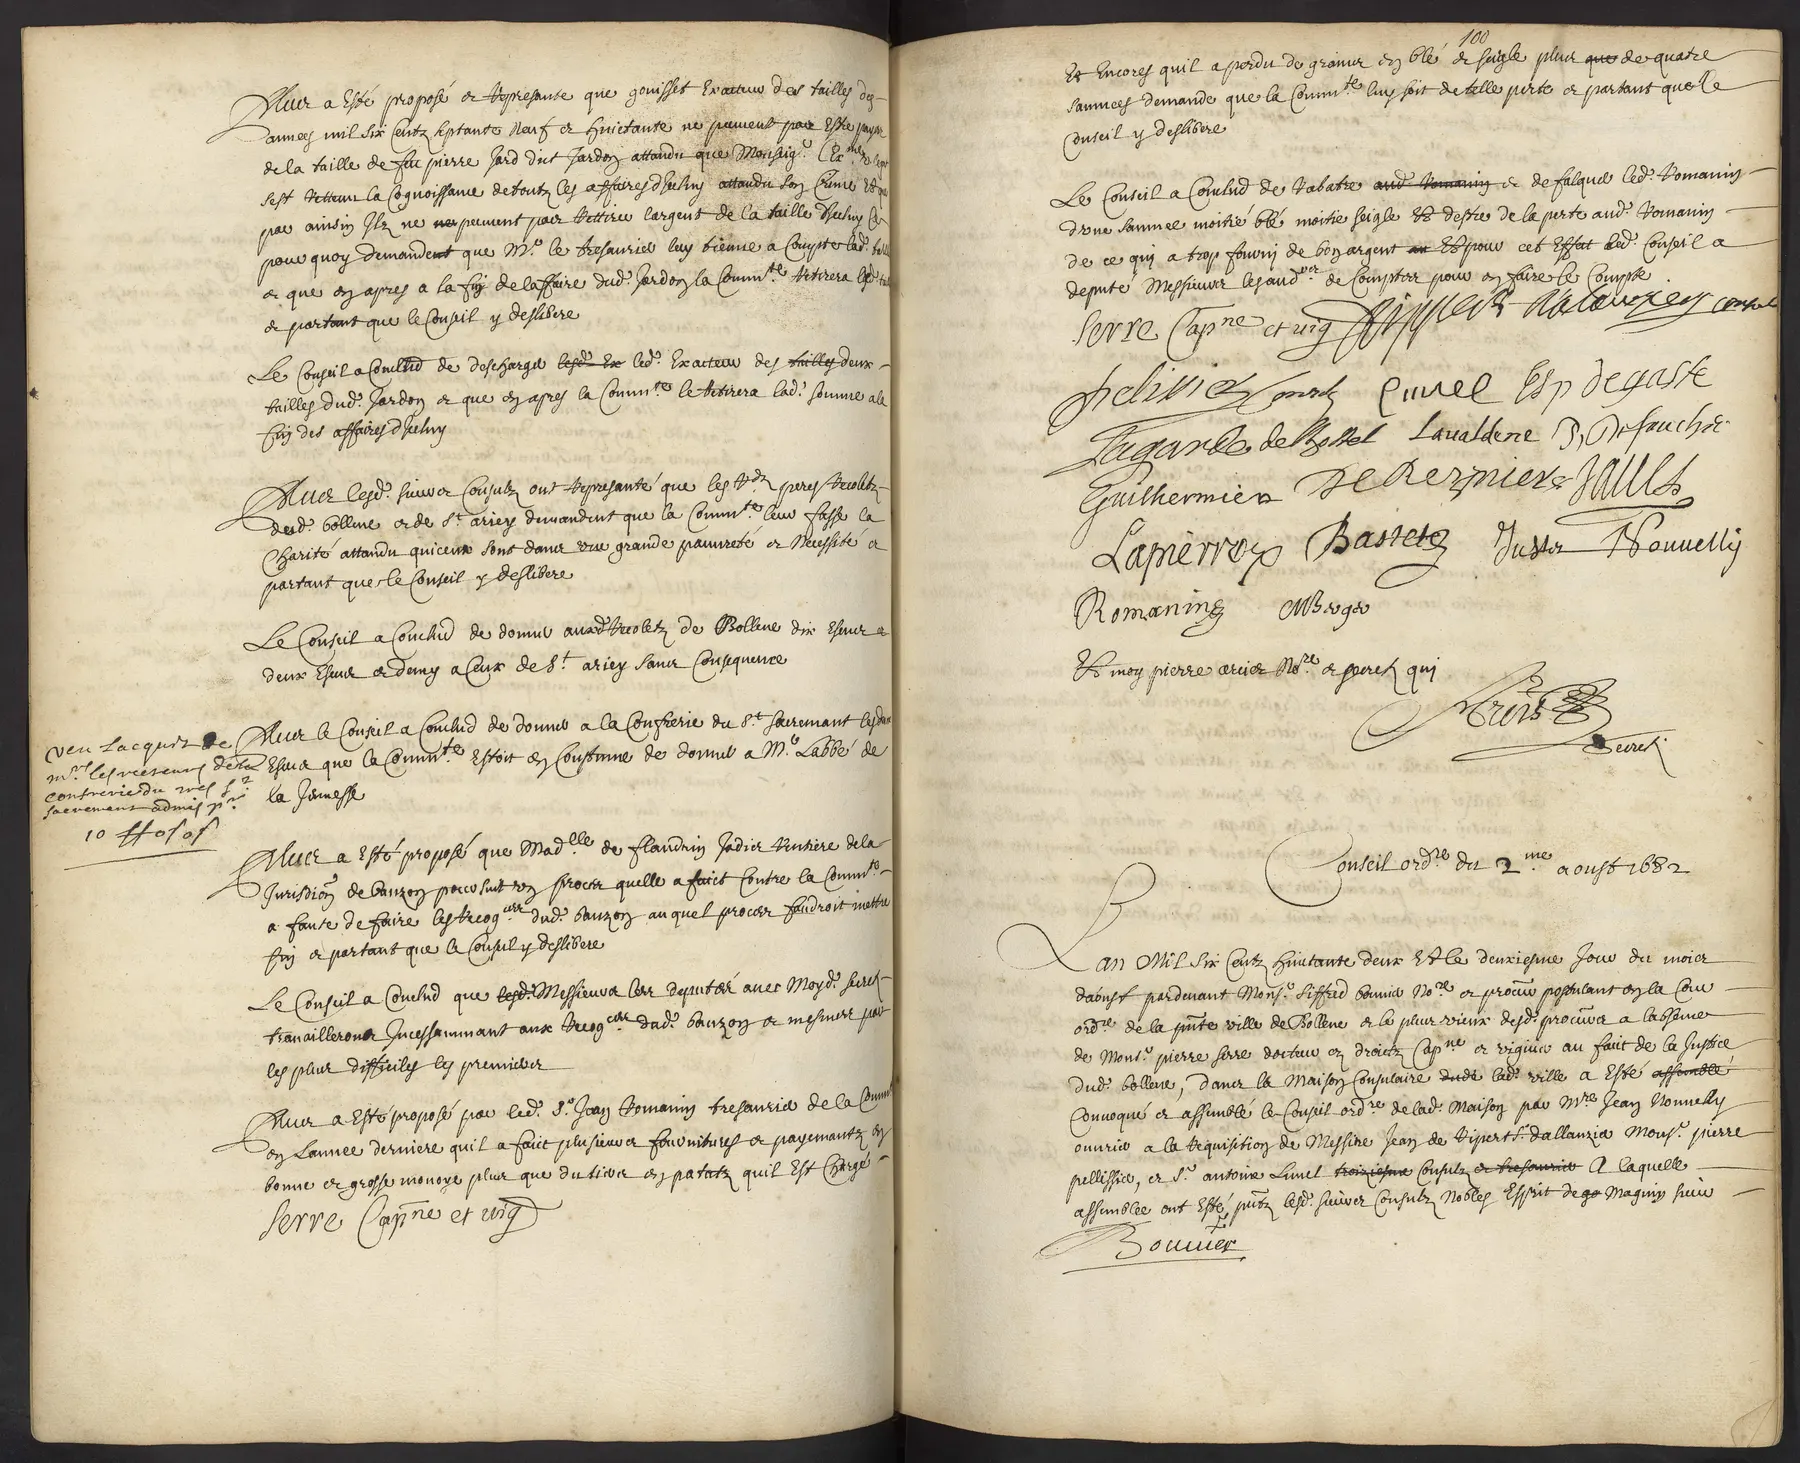 Plus a esté proposé et représanté que gouisset Exacteur des tailles des
années mil six Centz septante Neuf et huictante ne peuvent pas Estre payes
de la taille de feu pierre Jard dict Jardon attandu que Monseig.r
sest Retteneu la Cognoissance de toutz les affaires d'Iceluy attandu son Crime Et que
par ainsin Ilz ne peuvent pas Rettirer l'argent de la taille d'Iceluy
pour quoy demandent que M.r le tresaurier luy tienne a Compte lad.
et que en apres a la fin de laffaire dud. Jardon la Comm.té Retirera
et partant que le Conseil y deslibere
Le Conseil a Conclud de descharger lesd. Ex led. Exacteur des tailles deux
tailles dud. Jardon et que en apres la Comm.té le Retirera lad. somme a la
fin des affaires d'Iceluy
Plus lesd. sieurs Consulz ont Représanté que les R.dz peres Recoletz
dud. bollene et de S.t ariey demandent que la Comm.té leur fasse la
Charité attandu qu'iceux sont dans une grande pauvreté et Nécessité et
partant que le Conseil y deslibere
Le Conseil a Conclud de donner auxd. Recoletz de Bollene dix Escus et
deux Escus et demy a Ceux de S.t ariey sans Consequence
Plus le Conseil a Conclud de donner a la Confrerie du S.t sacremant les dix
Escus que la Comm.té Estoit en Coustume de donner a M.r Labbé de
la Jeunesse
veu lacquit de
m.rs les recteurs de la
confrerie du tres S.t
sacrement admis p.r
10
Plus a Esté proposé que Mad.lle de flandrin Jadis Rentiere de la
Jurisdion de bauzon poursuit son procès quelle a faict Contre la Comm.té
a faute de faire les Recog.ces dud. bauzon auquel procès faudroit mettre
fin et partant que le Conseil y deslibere
Le Conseil a Conclud que lesd. Messieurs les deputés avec Moyd. secret.
travailleront Incessammant aux Recog.ces dud. bauzon et mesmes par
les plus difficiles les premieres
Plus a Esté proposé par led. S.r Jean Romanin tresaurier de la Comm.
en Lannée derniere quil a faict plusieurs fournitures et payemantz en
bonne et grosse monoye plus que du tiers en patatz quil Est Chargé
Serre Cap.ne et vig
100
Et Encores quil a perdu de grains en blé et seigle plus que de quatre
saumées demande que la Comm.té luy soit de telle perte et partant que le
Conseil y deslibere
Le Conseil a Conclud de Rabatre aud. Romanin et defalquer led. Romanin
d'une saumée moitié blé moitié seigle Et destre de la perte aud. Romanin
de ce quy a trop fourny de bon argent au Et pour cet Effet led. Conseil a
deputé Messieurs les aud.rs de Comptes pour en faire le Compte
Serre Cap.ne et vig Consul
Pelissier Consul Lunel Esp degaste
Lagarde de Rostel Lavaldene
Guilhermier De Rezpnier
Lapierre Bastete Juster JNonnelly
Romanin MBerger
Et moy pierre arcier No.re et secret. quy
Secret.
Conseil ord.re du 2.me aoust 1682
Lan Mil Six Centz Huictante deux Et le deuxiesme Jour du mois
daoust pardevant Mons.r Siffred bonnier No.re et procur postulant en la Cour
ord.re de la p.nte ville de Bollene et le plus vieux desd. procurs a labsence
de Mons.r pierre serre docteur es droictz Cap.ne et viguier au faict de la Justice
dud. bollene, dans la Maison Consulaire dude lad. ville a Esté assemblé
Convoqué et assemblé le Conseil ord.re de lad. Maison par M.re Jean Nonnelly
ouvrier a la Réquisition de Messire Jean de Ripert S.r dallauzier Mons.r pierre
pellissier, et S.r antoine Lunel troiziesme Consulz et tresaurier A laquelle
assemblée ont Esté p.ntz lesd. sieurs Consulz Nobles Esprit de ga Magnin sieur
Bonnier